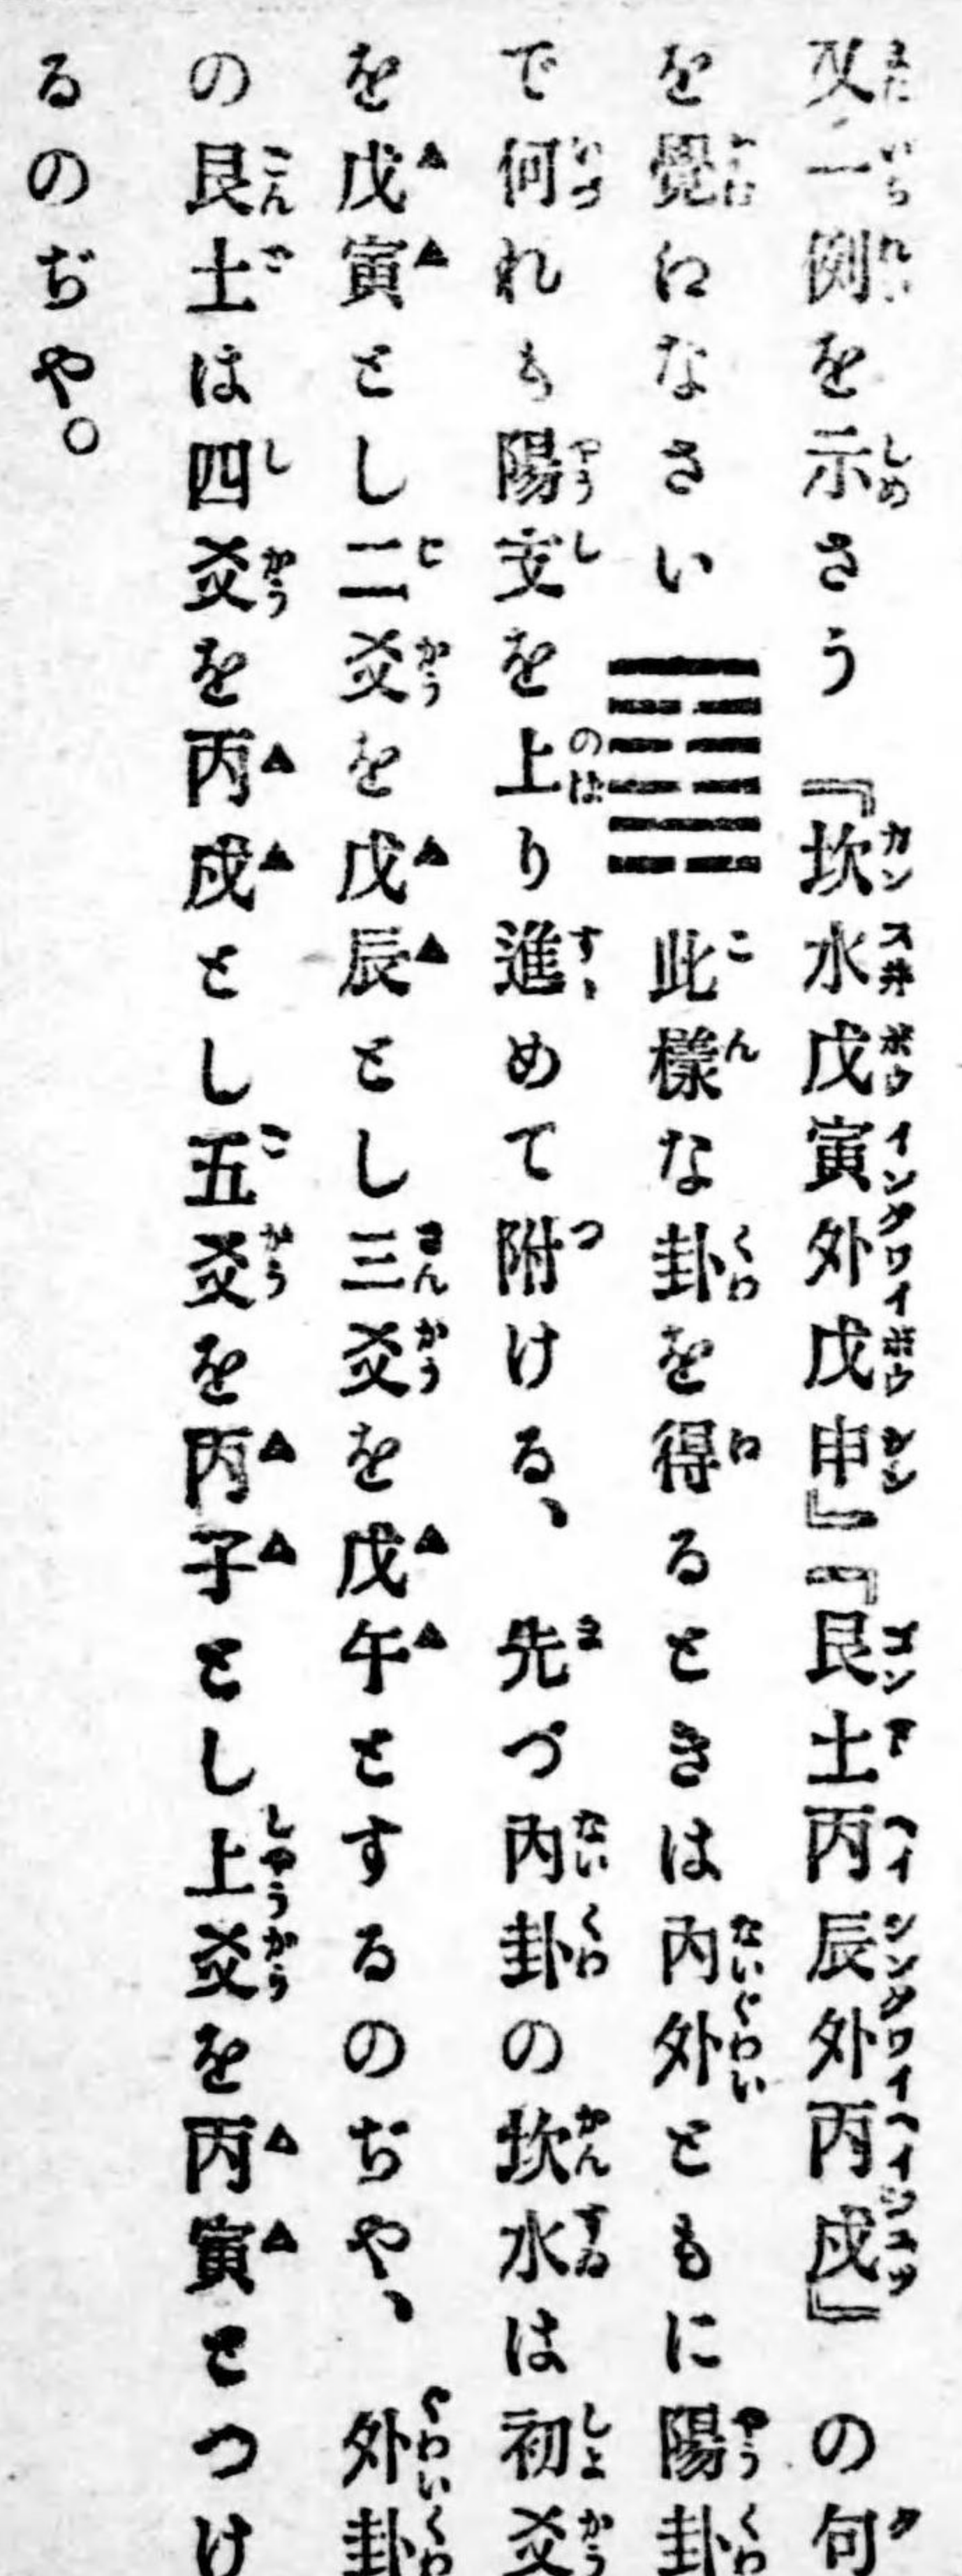 又一例を示さう『坎水戊寅外戊申』『艮土丙辰外丙戌』の句
を覺江なさい䷃此樣な卦を得るときは內外ともに陽卦
で何れも陽支を上り進めて附ける、先づ內卦の坎水は初爻
を戊寅とし二爻を戊辰とし三爻を戊午とするのぢや、外卦
の艮土は四爻を丙戌とし五爻を丙子とし上爻を丙寅とつけ
るのぢや。